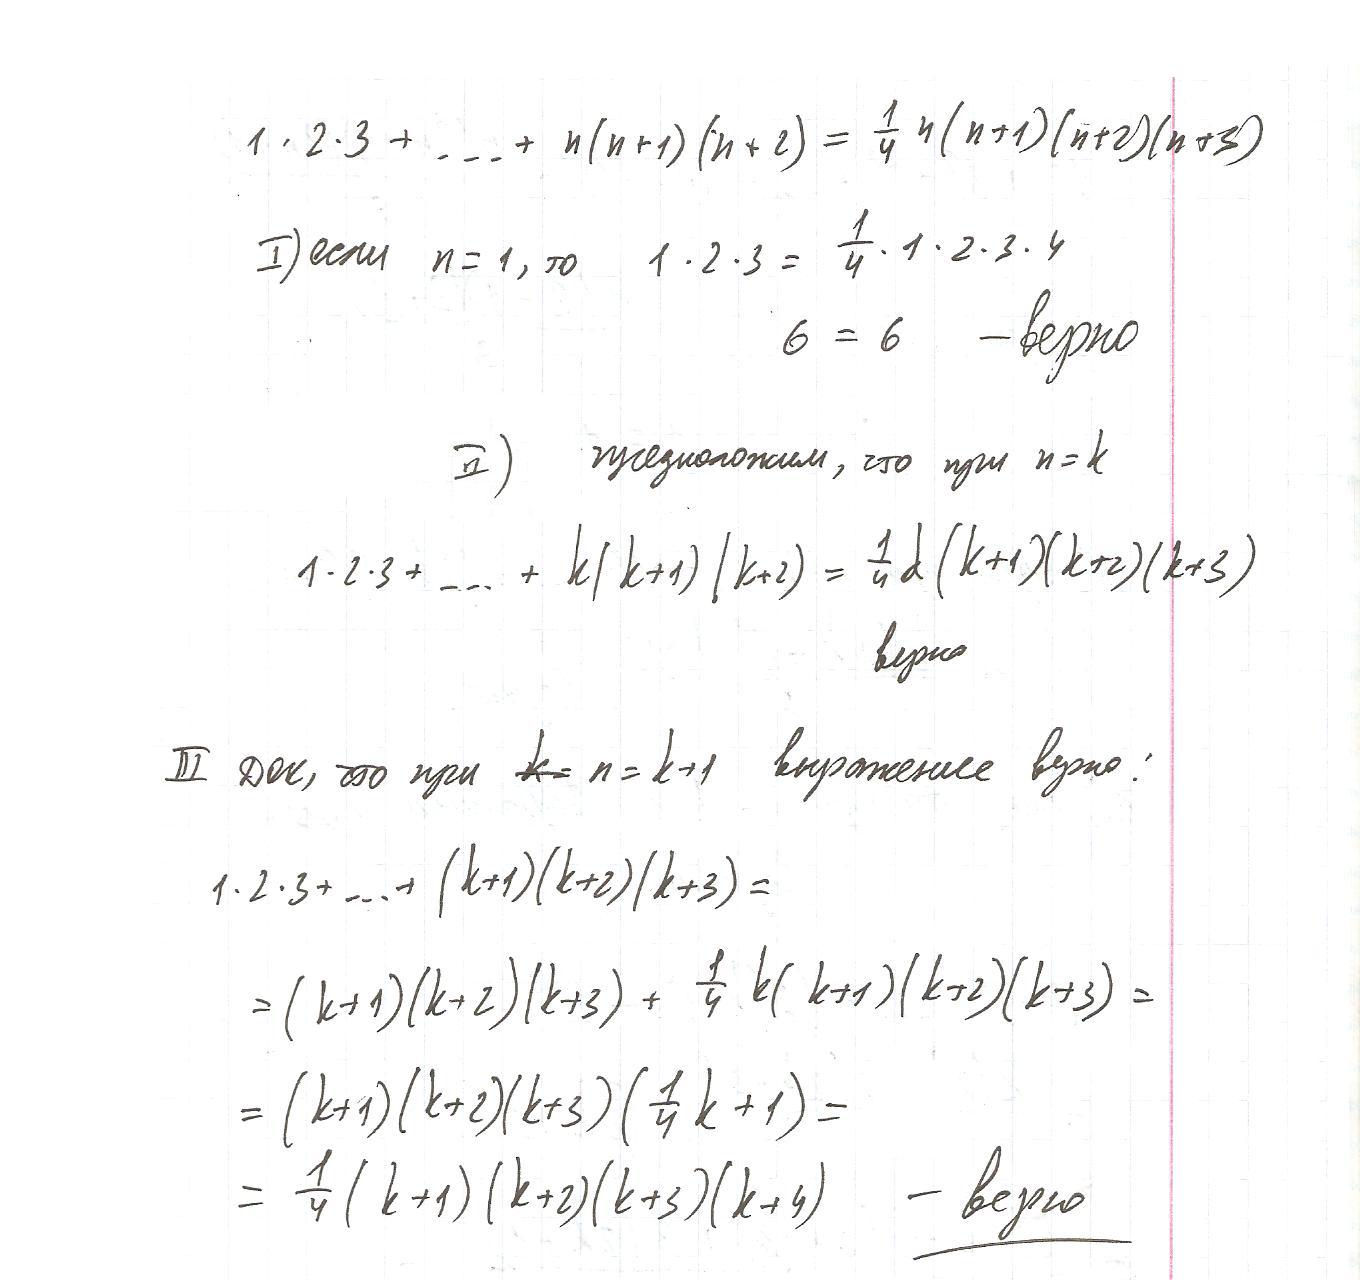 1·2·3 + ... + n(n+1)(n+2) = 1/4 n(n+1)(n+2)(n+3)
I) если n=1, то 1·2·3 = 1/4·1·2·3·4
6 = 6 – верно
II) предположим, что при n=k
1·2·3 + ... + k(k+1)(k+2) = 1/4 k(k+1)(k+2)(k+3)
верно
III Док, что при k= n=k+1 выражение верно:
1·2·3 + ... + (k+1)(k+2)(k+3) =
= (k+1)(k+2)(k+3) + 1/4 k(k+1)(k+2)(k+3) =
= (k+1)(k+2)(k+3)(1/4 k + 1) =
= 1/4 (k+1)(k+2)(k+3)(k+4) – верно